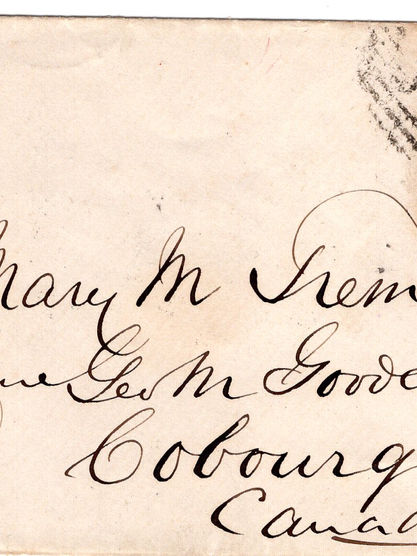 Mary M Trem
Geo M Goode
Cobourg
Canad